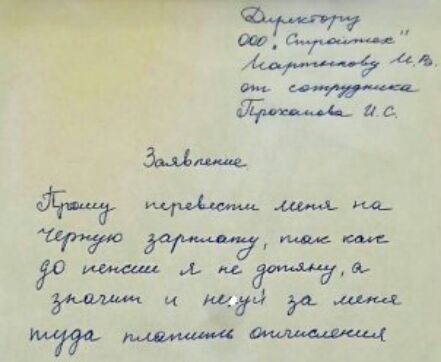 Директору
ООО "Стройтех"
Мартынову М.В.
от сотрудника
Проханова И.С.
Заявление.
Прошу перевести меня на
чёрную зарплату, так как
до пенсии я не дотяну, а
значит и нехуй за меня
туда платить отчисления